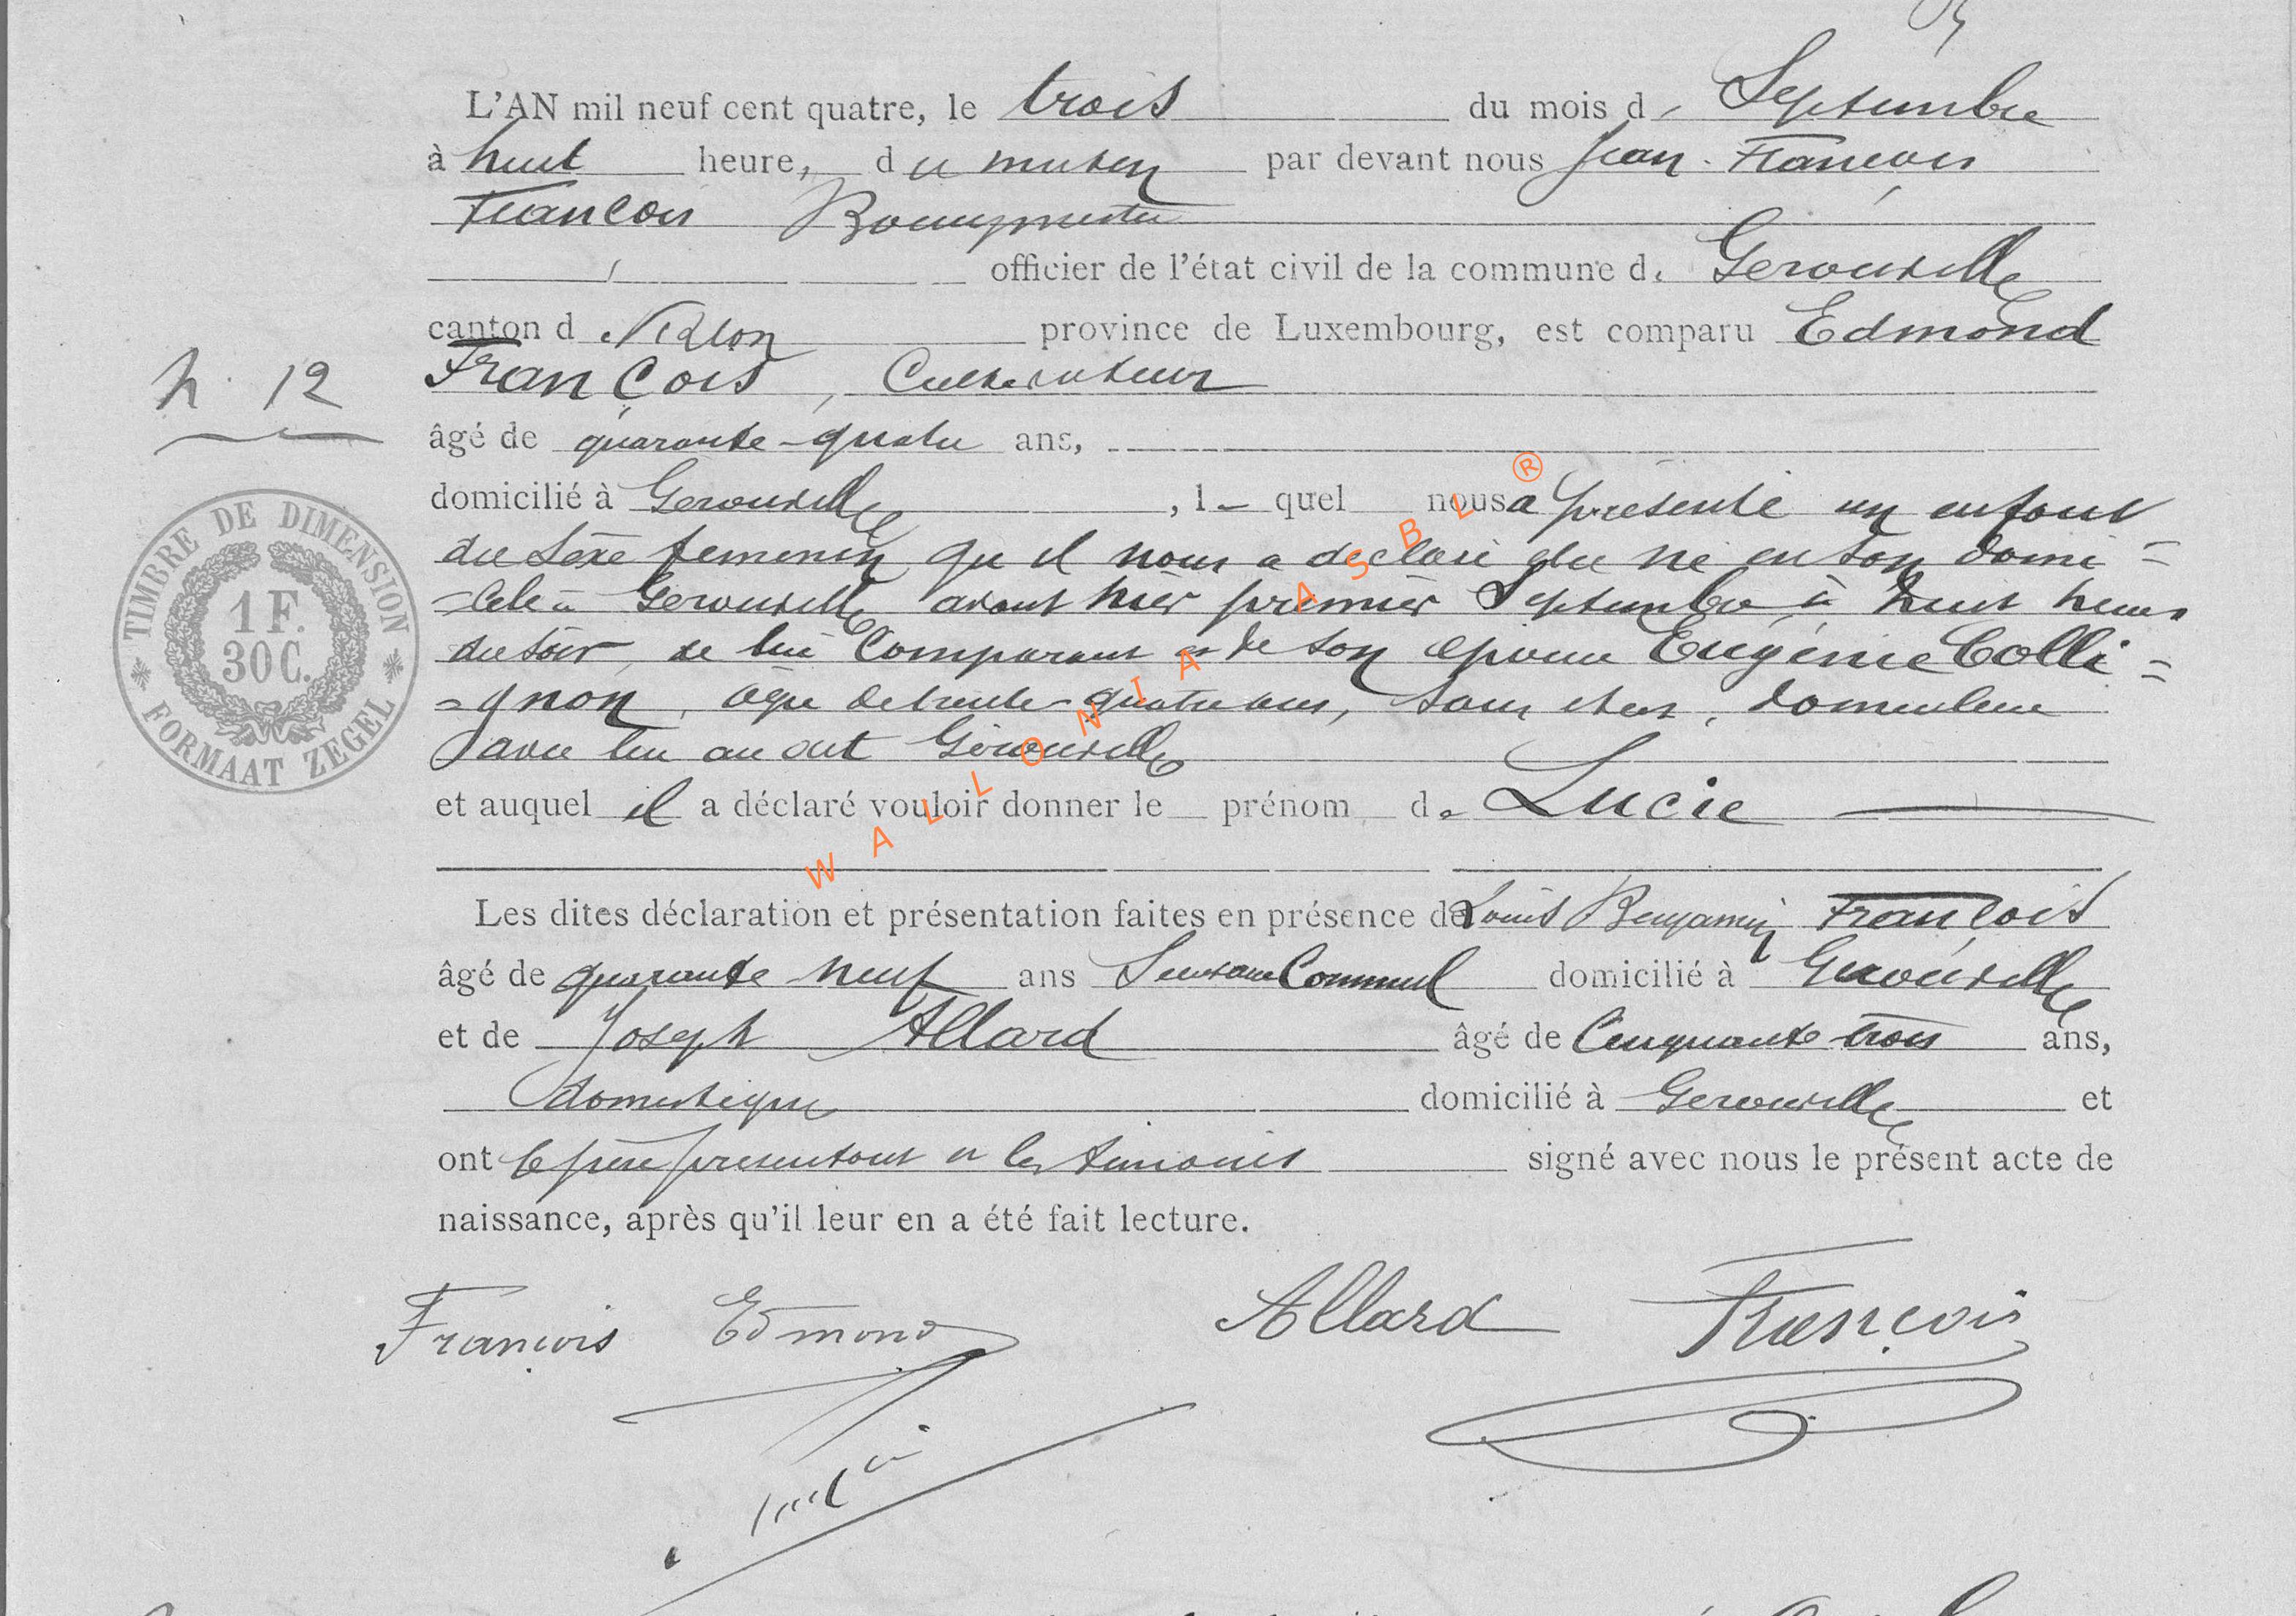 L'AN mil neuf cent quatre, le trois du mois d, Septembre
à huit heure, du matin par devant nous Jean-François
François Bourgmestre
officier de l'état civil de la commune de Gerouville
canton d Virton province de Luxembourg, est comparu Edmond
François, Cultivateur
n. 12
âgé de quarante-quatre ans,
domicilié à Gerouville, l- quel nous a présenté un enfant
du sexe feminin qu'il nous a declaré etre né en son domi=
=cile à Gerouville avant hier premier Septembre à huit heures
du soir, de lui Comparant et de son epouse Eugénie Colli=
=gnon, agée de trente-quatre ans, sans etat, domiciliée
avec lui au dit Gérouville
et auquel il a déclaré vouloir donner le prénom de Lucie
TIMBRE DE DIMENSION
1 F.
30 C.
FORMAAT ZEGEL
WALLONIA ASBL ®
Les dites déclaration et présentation faites en présence de Louis Benjamin François
âgé de quarante neuf ans domicilié à Gerouville
et de Joseph Allard âgé de Cinquante trois ans,
domestique domicilié à Gerouville et
ont le père présentant et les témoins signé avec nous le présent acte de
naissance, après qu'il leur en a été fait lecture.
François Edmond Allard François